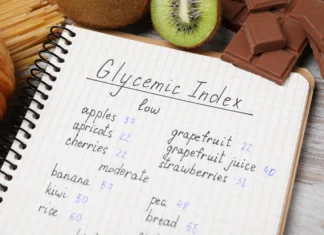 Glycemic Index
low
apples 32
apricots 22
cherries 22
grapefruit 22
grapefruit juice 40
strawberries 32
moderate
banana 53
kuwi 50
rice 60
pea 48
bread 65